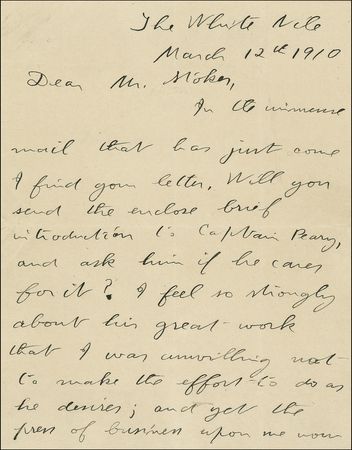 The White Nile
March 12th 1910
Dear Mr. Stoker,
In the immense
mail that has just come
I find your letter. Will you
send the enclose brief
introduction to Captain Peary,
and ask him if he cares
for it? I feel so strongly
about his great work
that I was unwilling not
to make the effort to do as
he desires; and yet the
press of business upon me now